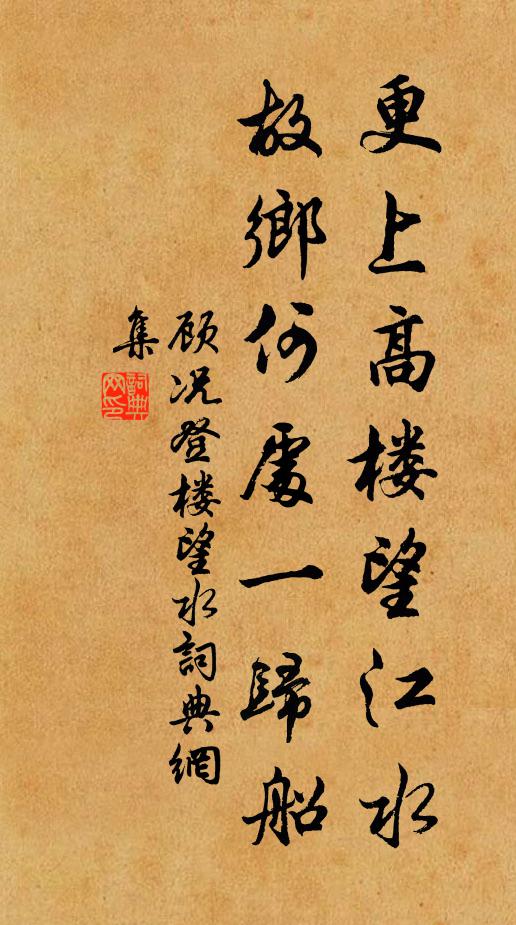 更上高楼望江水
故鄉何處一歸船
顾况登楼望水詞典網
集
詞典
网印